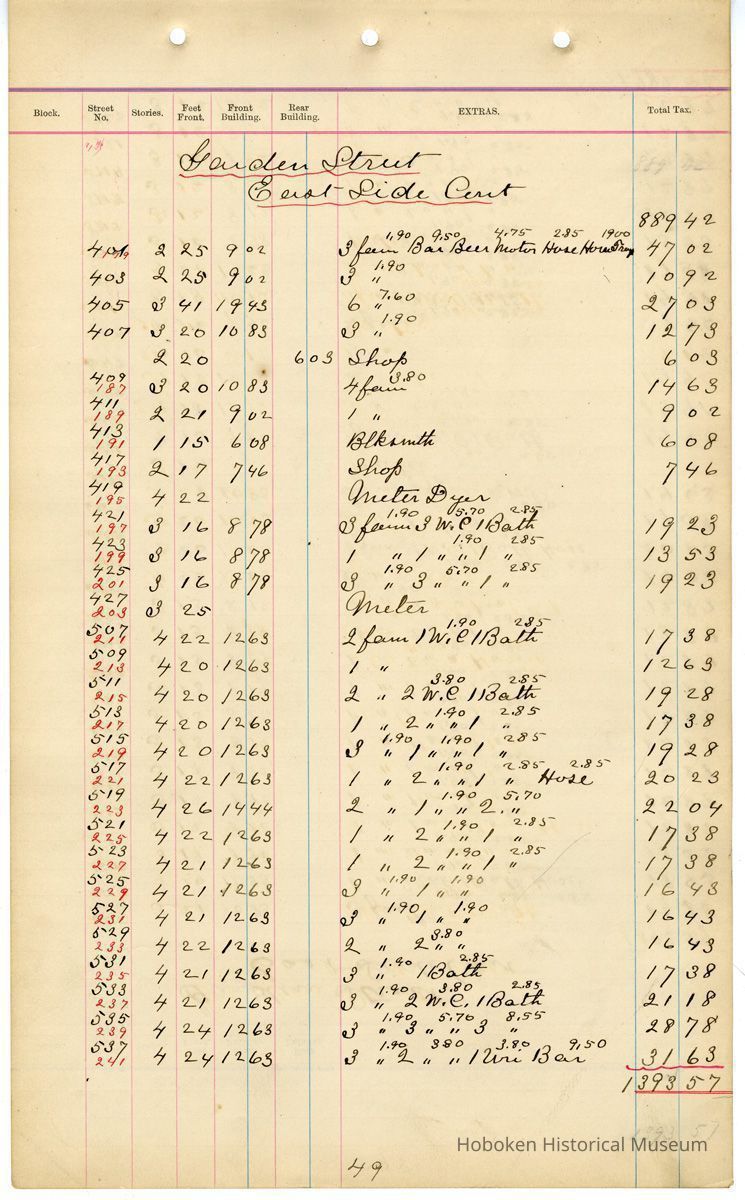 Block. Street No. Stories. Feet Front. Front Building. Rear Building. EXTRAS. Total Tax.
Garden Street
East Side Cont
889 42
1.90 9.50 4.75 2.85 1900
401 2 25 9 02 3 fam Bar Beer Motor Hose 47 02
1.90
403 2 25 9 02 3 " 10 92
7.60
405 3 41 19 43 6 " 27 03
1.90
407 3 20 10 83 3 " 12 73
2 20 6 03 Shop 6 03
409 3.80
187 3 20 10 83 4 fam 14 63
411
189 2 21 9 02 1 " 9 02
413
191 1 15 6 08 Blksmith 6 08
417
193 2 17 7 46 Shop 7 46
419
195 4 22 Meter Dyer
421 1.90 5.70 2.85
197 3 16 8 78 3 fam 3 W.C 1 Bath 19 23
423 1.90 2.85
199 3 16 8 78 1 " 1 " " 1 " 13 53
425 1.90 5.70 2.85
201 3 16 8 78 3 " 3 " " 1 " 19 23
427
203 3 25 Meter
507 1.90 2.85
211 4 22 12 63 2 fam 1 W.C 1 Bath 17 38
509
213 4 20 12 63 1 " 12 63
511 3.80 2.85
215 4 20 12 63 2 " 2 W.C 1 Bath 19 28
513 1.90 2.85
217 4 20 12 63 1 " 2 " " 1 " 17 38
515 1.90 1.90 2.85
219 4 20 12 63 3 " 1 " " 1 " 19 28
517 1.90 2.85 2.85
221 4 22 12 63 1 " 2 " " 1 " Hose 20 23
519 1.90 5.70
223 4 26 14 44 2 " 1 " " 2 " 22 04
521 1.90 2.85
225 4 22 12 63 1 " 2 " " 1 " 17 38
523 1.90 2.85
227 4 21 12 63 1 " 2 " " 1 " 17 38
525 1.90 1.90
229 4 21 12 63 3 " 1 " " 16 43
527 1.90 1.90
231 4 21 12 63 3 " 1 " " 16 43
529 3.80
233 4 22 12 63 2 " 2 " " 16 43
531 1.90 2.85
235 4 21 12 63 3 " 1 Bath 17 38
533 1.90 3.80 2.85
237 4 21 12 63 3 " 2 W.C. 1 Bath 21 18
535 1.90 5.70 8.55
239 4 24 12 63 3 " 3 " " 3 " 28 78
537 1.90 3.80 3.80 9.50
241 4 24 12 63 3 " 2 " " 1 Uri Bar 31 63
1393 57
Hoboken Historical Museum
49